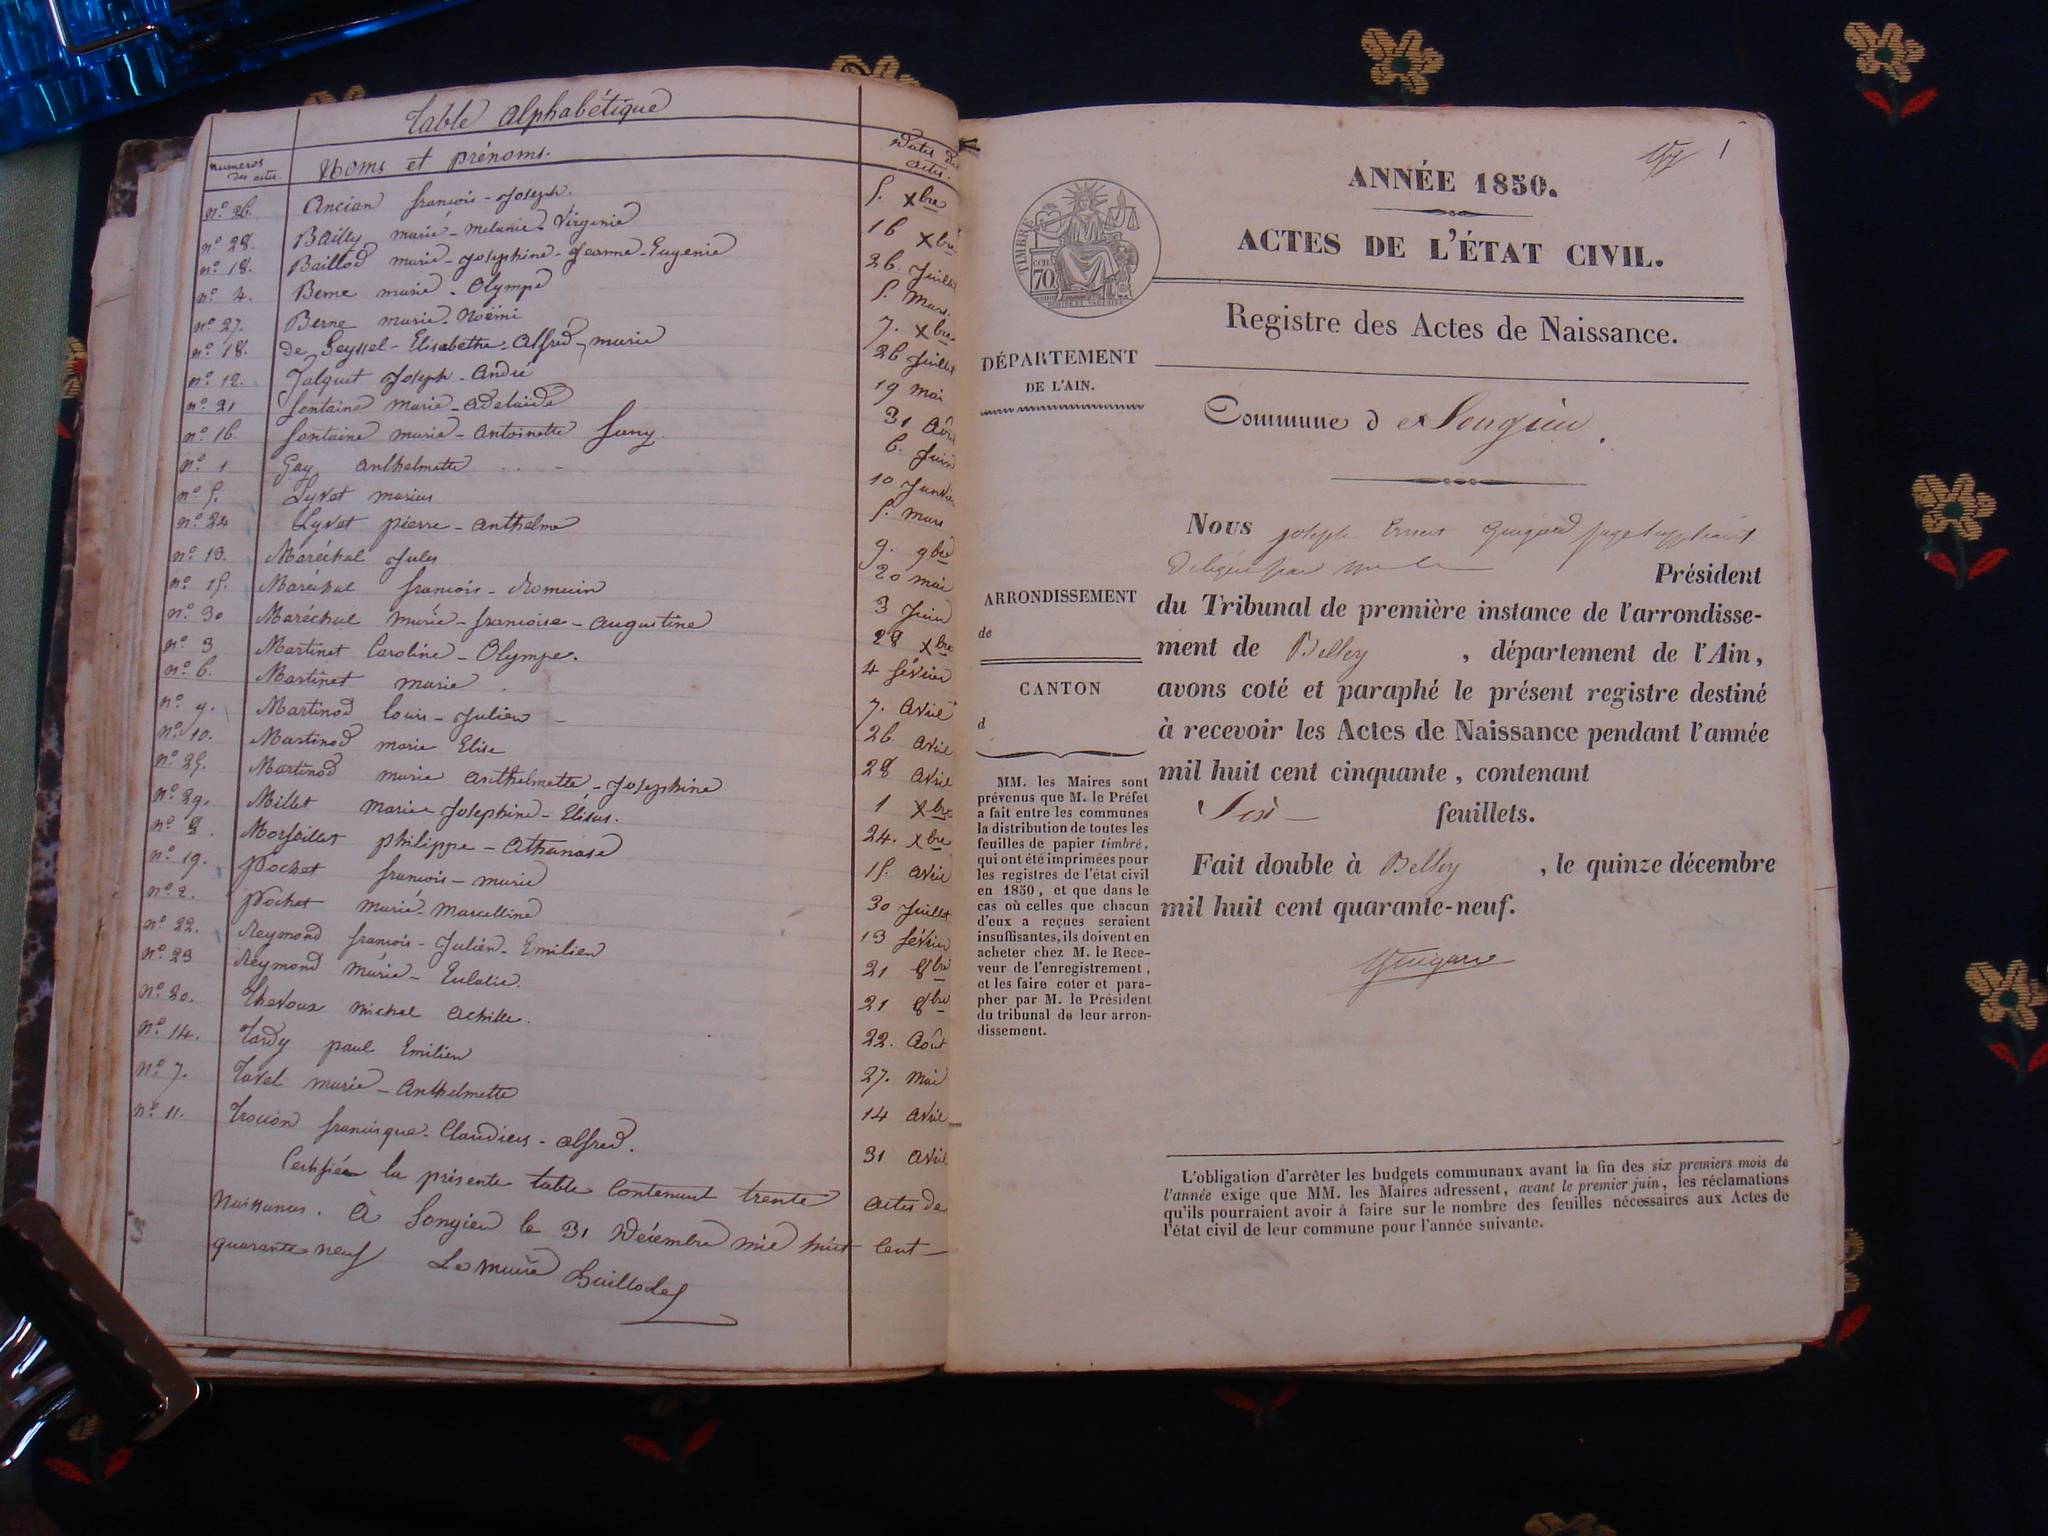 Table Alphabétique
numeros des actes. Noms et prénoms. Dates des actes.
n.° 26. Ancian françois - Joseph. 5. Xbre
n.° 28. Bailly marie - melanie - Virginie 16 Xbre
n.° 18. Baillod marie - Josephine - Jeanne - Eugenie 26. Juillet
n.° 4. Berne marie - Olympe 5. Mars.
n.° 27. Berne marie - Noëmi 7. Xbre
n.° 18. de Seyssel - Elisabethe - Alfred - marie 26 Juillet
n.° 12. Jalquet Joseph - André 19 mai
n.° 21 fontaine Marie - Adelaïde 31 Août
n.° 16. fontaine marie - Antoinette fany. 6. Juin
n.° 1 Gay Anthelmette 10 Janvier
n.° 5. Lyvet marius 5. Mars
n.° 24 Lyvet pierre - Anthelme 9. 9bre
n.° 13. Maréchal Jules 20 mai
n.° 15. Maréchal françois - Romain 3 Juin
n.° 30 Maréchal marie - françoise - augustine 28 Xbre
n.° 3 Martinet Caroline - Olympe. 4 février
n.° 6. Martinet marie 7. Avril
n.° 9. Martinod Louis - Julien 26. Avril
n.° 10. Martinod marie Elise 28 Avril
n.° 25. Martinod marie Anthelmette - Josephine 1 Xbre
n.° 29. Millet marie Josephine - Elisa. 24. Xbre
n.° 8. philippe - Athanase 15. Avril
n.° 19. Pochet françois - marie 30 Juillet
n.° 2. Pochet marie - Marcelline 13 février
n.° 22. Reymond françois - Julien - Emilien 21 8bre
n.° 23 Reymond Marie - Eulalie. 21 8bre
n.° 20. Thevoux michel Achille. 22. Août
n.° 14. Tardy paul Emilien 27. Mai
n.° 7. Tavel marie - Anthelmette 14 Avril
n.° 11. francisque - Claudius - Alfred. 31 Avril
Certifiée la présente table Contenant trente actes de
Naissances. À Songieu le 31 Décembre mil huit Cent
quarante neuf Le Maire Baillod
1
ANNÉE 1850.
ACTES DE L'ÉTAT CIVIL.
TIMBRE
cen 70
Registre des Actes de Naissance.
DÉPARTEMENT
DE L'AIN.
Commune de Songieu.
Nous joseph Ernest Guigard juge suppléant
délégué par m le Président
du Tribunal de première instance de l'arrondisse-
ment de Belley, département de l'Ain,
avons coté et paraphé le présent registre destiné
à recevoir les Actes de Naissance pendant l'année
mil huit cent cinquante, contenant
Six feuillets.
Fait double à Belley, le quinze décembre
mil huit cent quarante-neuf.
Guigard
ARRONDISSEMENT
de
CANTON
d
MM. les Maires sont
prévenus que M. le Préfet
a fait entre les communes
la distribution de toutes les
feuilles de papier timbré,
qui ont été imprimées pour
les registres de l'état civil
en 1850, et que dans le
cas où celles que chacun
d'eux a reçues seraient
insuffisantes, ils doivent en
acheter chez M. le Rece-
veur de l'enregistrement,
et les faire coter et para-
pher par M. le Président
du tribunal de leur arron-
dissement.
L'obligation d'arrêter les budgets communaux avant la fin des six premiers mois de
l'année exige que MM. les Maires adressent, avant le premier juin, les réclamations
qu'ils pourraient avoir à faire sur le nombre des feuilles nécessaires aux Actes de
l'état civil de leur commune pour l'année suivante.